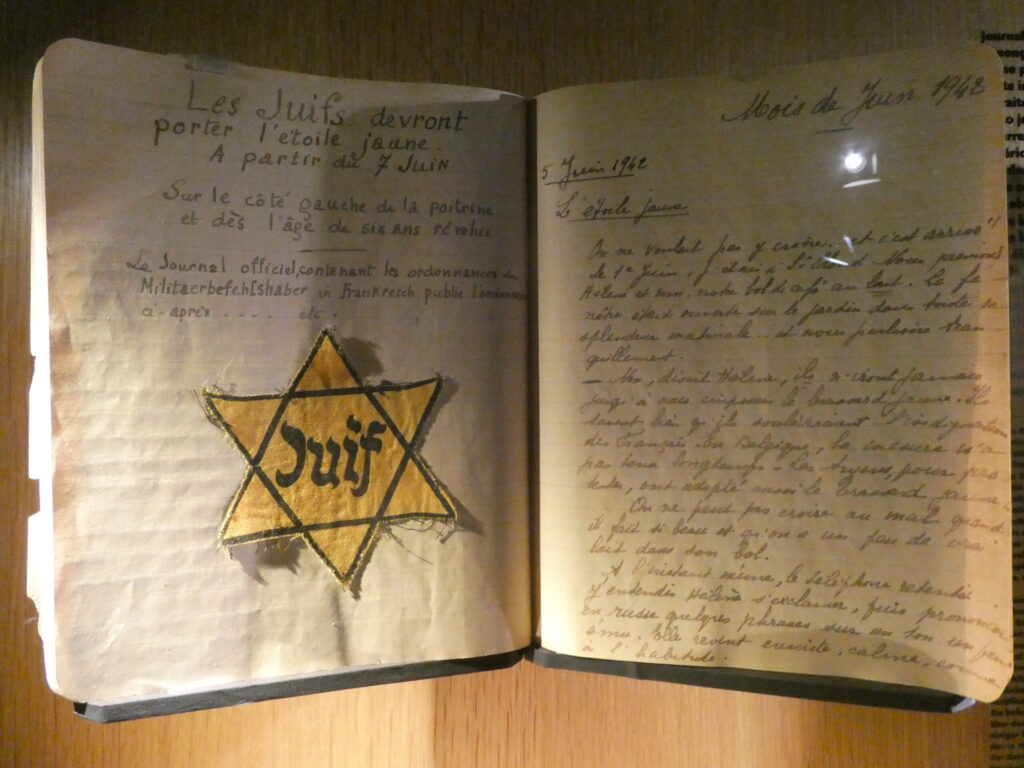 Les Juifs devront
porter l'étoile jaune.
A partir du 7 Juin
Sur le côté gauche de la poitrine
et dès l'âge de six ans révolus
Le Journal officiel, contenant les ordonnances du
Militaerbefehlshaber in Frankreich publie l'ordonnance
ci-après .... etc.
Juif
Mois de Juin 1942
5 Juin 1942
L'étoile jaune
On ne voulait pas y croire... et c'est arrivé!
le 1er Juin, j'étais à St Cloud. Nous prenions
Hélène et moi, notre bol de café au lait. La fe
nêtre était ouverte sur le jardin dans toute sa
splendeur matinale... et nous parlions tran
quillement.
— Non, disait Hélène, ils n'iront jamais
jusqu'à nous imposer le brassard jaune. Ils
savent bien qu'ils soulèveraient l'indignation
des Français. En Belgique, la mesure n'a
pas tenu longtemps. Les Aryens, pour pro
tester, ont adopté aussi le brassard jaune
On ne peut pas croire au mal quand
il fait si beau et qu'on a un peu de vrai
lait dans son bol.
A l'instant même, le téléphone retentit
J'entendis Hélène s'exclamer, puis prononcer
en russe quelques phrases sur un ton un peu
ému. Elle revint ensuite, calme, comme
à l'habitude.